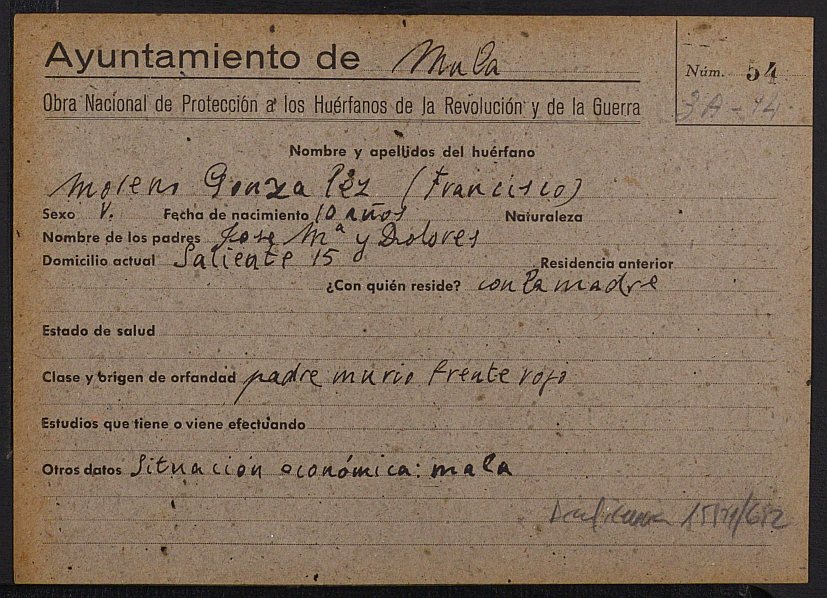 Ayuntamiento de Mula
Núm. 54
3A-14
Obra Nacional de Protección a los Huérfanos de la Revolución y de la Guerra
Nombre y apellidos del huérfano
Moreno Gonzalez (Francisco)
Sexo V. Fecha de nacimiento 10 años Naturaleza
Nombre de los padres Jose Mª y Dolores
Domicilio actual Saliente 15 Residencia anterior
¿Con quién reside? con la madre
Estado de salud
Clase y origen de orfandad padre murio frente rojo
Estudios que tiene o viene efectuando
Otros datos Situación económica: mala